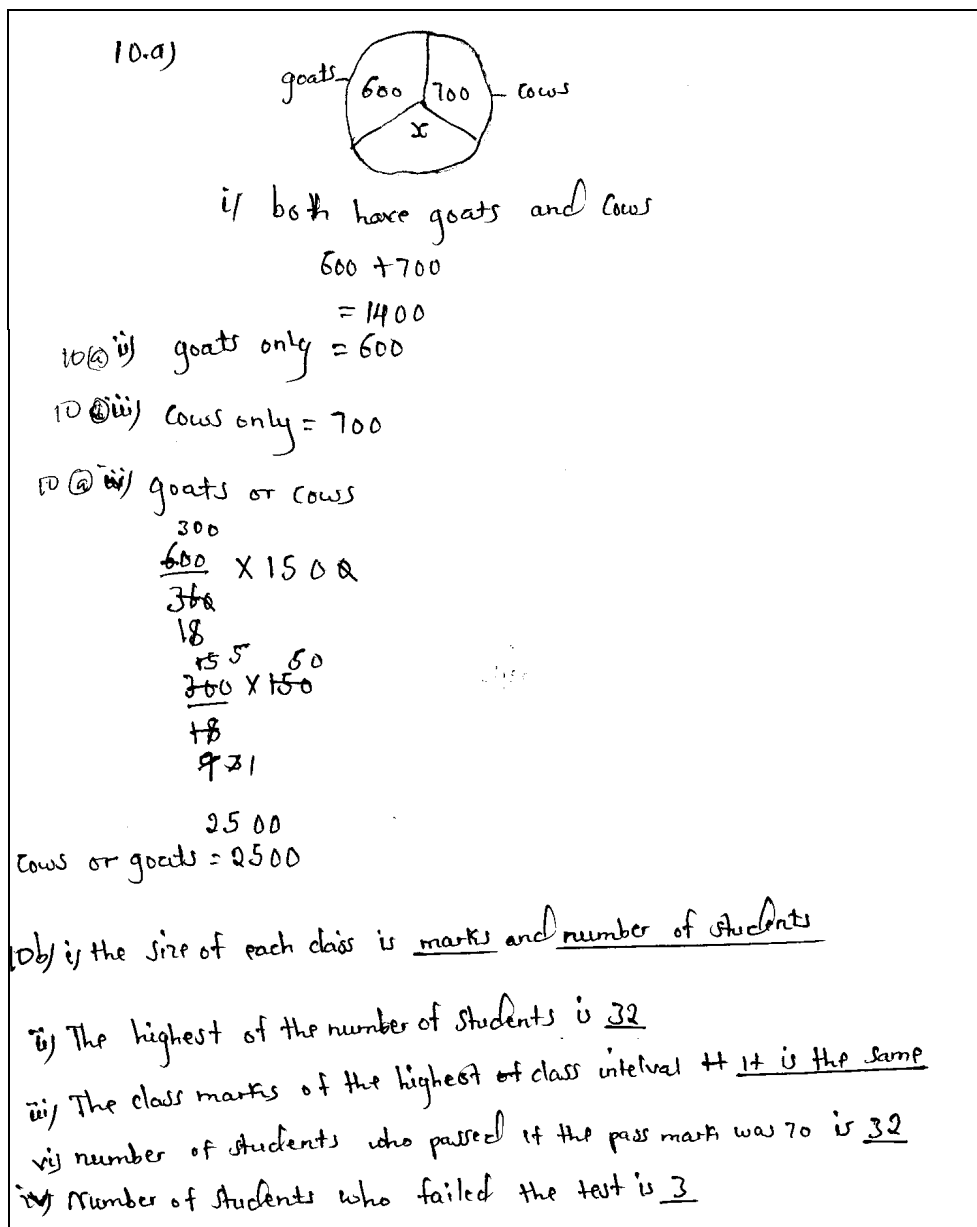 10.a)
goats 600 700 cows
x
i/ both have goats and cows
600 + 700
= 1400
10(a) ii) goats only = 600
10 (a) iii) cows only = 700
10 (a) iv) goats or cows
300
600 X 1500
360
18
15 5 50
300 X 150
18
9 3 1
2500
cows or goats = 2500
10b/ i/ the size of each class is marks and number of students
ii) The highest of the number of students is 32
iii) The class marks of the highest of class intelval It is the same
vi) number of students who passed if the pass mark was 70 is 32
iv) Number of students who failed the test is 3